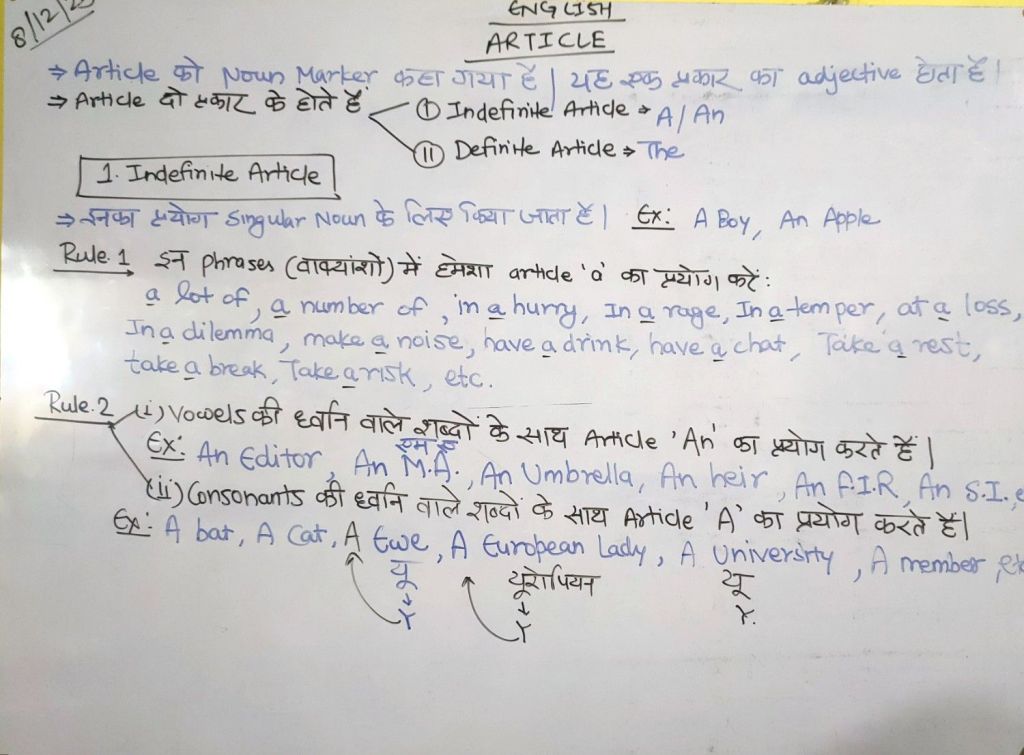 8/12/2
ENGLISH
ARTICLE
⇒ Article को Noun Marker कहा गया है | यह एक प्रकार का adjective होता है |
⇒ Article दो प्रकार के होते हैं
① Indefinite Article → A/An
⑪ Definite Article → The
1. Indefinite Article
⇒ इनका प्रयोग Singular Noun के लिए किया जाता है | Ex: A Boy, An Apple
Rule.1 इन phrases (वाक्यांशो) में हमेशा article 'a' का प्रयोग करें:
a lot of, a number of, in a hurry, In a rage, In a temper, at a loss,
In a dilemma, make a noise, have a drink, have a chat, Take a rest,
take a break, Take a risk, etc.
Rule.2 (i) Vowels की ध्वनि वाले शब्दों के साथ Article 'An' का प्रयोग करते हैं |
एम ए
Ex: An Editor, An M.A., An Umbrella, An heir, An F.I.R, An S.I.,
(ii) Consonants की ध्वनि वाले शब्दों के साथ Article 'A' का प्रयोग करते हैं|
Ex: A bat, A Cat, A Ewe, A European Lady, A University, A member, etc
यू यूरोपियन यू
Y Y Y.